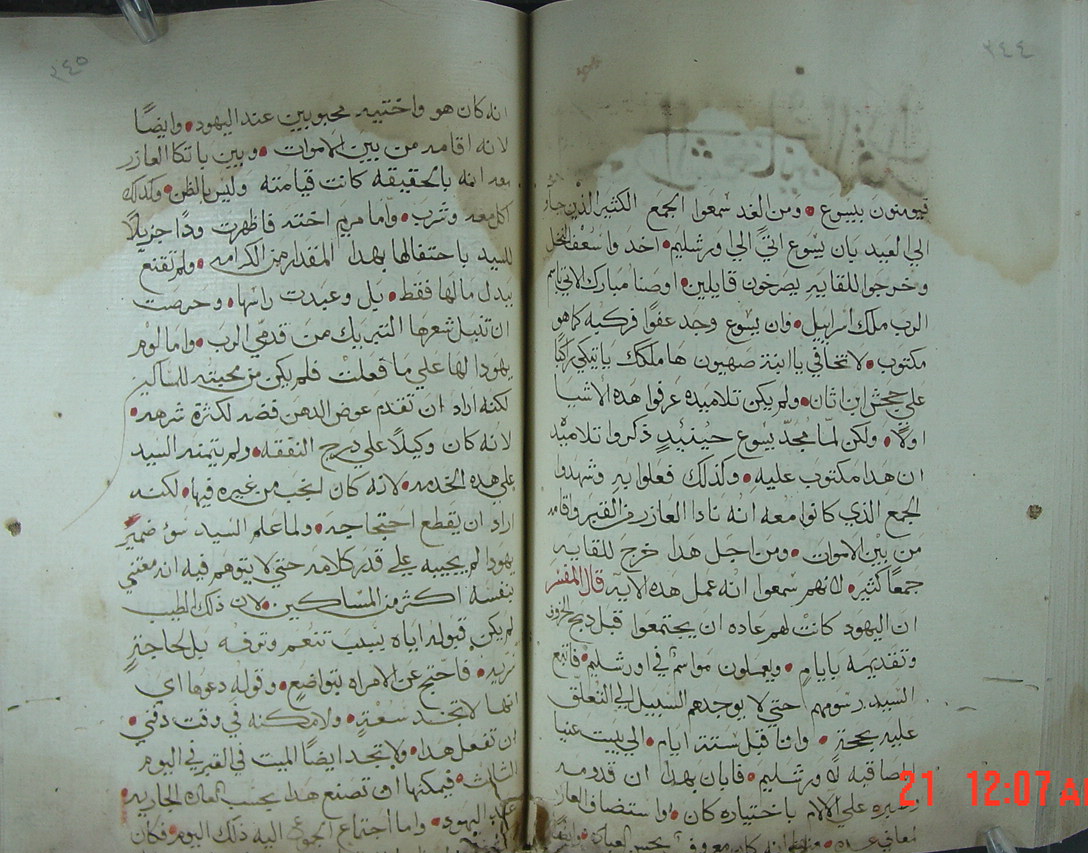 ٢٤٤
فيومنون بيسوع • ومن الغد سمعوا الجمع الكثير الذين جاو
الي العيد بان يسوع اتي الي اورشليم • اخدوا سعف النخل
وخرجوا للقاييه يصرخون قايلين • اوصنا مبارك الاتي باسم
الرب ملك اسراييل • وان يسوع وجد عفوًا فركبه كما هو
مكتوب • لا تخافي يا ابنة صهيون ها ملكك ياتيكي راكبًا
علي جحش ابن اتان • ولم يكن تلاميده عرفوا هده الاشيا
اولًا • ولكن لما مجد يسوع حينيدٍ دكروا تلاميد
ان هدا مكتوب عليه • وكدلك فعلوا به وشهدوا
الجمع الذي كانوا معه انه نادا العازر من القبر واقامه
من بين الاموات • ومن اجل هدا خرج للقاييه
جمعًا كثير • لانهم سمعوا انه عمل هده الايه قال المفسر
ان اليهود كانت لهم عاده ان يجتمعوا قبل دبح الخروف
وتقديمه بايام • ويعملون مواسم في اورشليم • فاتبع
السيد رسومهم حتي لا يوجدهم السبيل الي التعلق
عليه بحجة • واتا قبل ستة ايام • الي بيت عنيا
المصاقبه لاورشليم • فابان بهدا ان قدومه
علي الالام باختياره كان • واستضاف العازر
٢٤٥
انه كان هو واختيه محبوبين عند اليهود • وايضًا
لانه اقامه من بين الاموات • وبين باتكا العازر
معه انه بالحقيقه كانت قيامته وليس بالظن • وكدلك
اكل معه وشرب • واما مريم اخته فاظهرت ودًا جزيلًا
للسيد باحتفالها بهدا المقدار من الكرامه • ولم تقنع
ببدل مالها فقط • بل وعبدت راسها • وحرصت
ان تنيل شعرها التبريك من قدمي الرب • واما لوم
يهودا لها علي ما فعلت فلم يكن من محبته للمساكين
لكنه اراد ان تقدم عوض الدهن فضه لكثرة شرهه •
لانه كان وكيلًا علي درج النفقه • ولم يتمنه السيد
علي هده الخدمه • لانه كان انجب من غيره فيها • لكنه
اراد ان يقطع احتجاجه • ولما علم السيد سو ضمير
يهودا لم يجيبه علي قدر كلامه حتي لا يتوهم فيه انه معتني
بنفسه اكثر من المساكين • لان دلك الطيب
لم يكن قبوله اياه بسبب تنعم وترفه بل لحاجةٍ
تزيد • فاحتج عن الامراه بتواضع • وقوله دعوها اي
انها لا تجد سعة • ولا مكنه في وقت دفني •
ان تفعل هدا • ولا تجد ايضًا الميت في القبر في اليوم
الثالث • فيمكنها ان تصنع هدا بحسب العاده الجاريه
عند اليهود • واما اجتماع الجموع اليه دلك اليوم • فكان